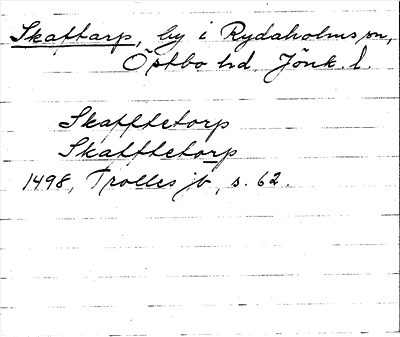 Skaftarp, by i Rydaholms sn,
Östbo hd. Jönk. l.
Skafftetorp
Skafftetorp
1498, Trolles jb, s. 62.